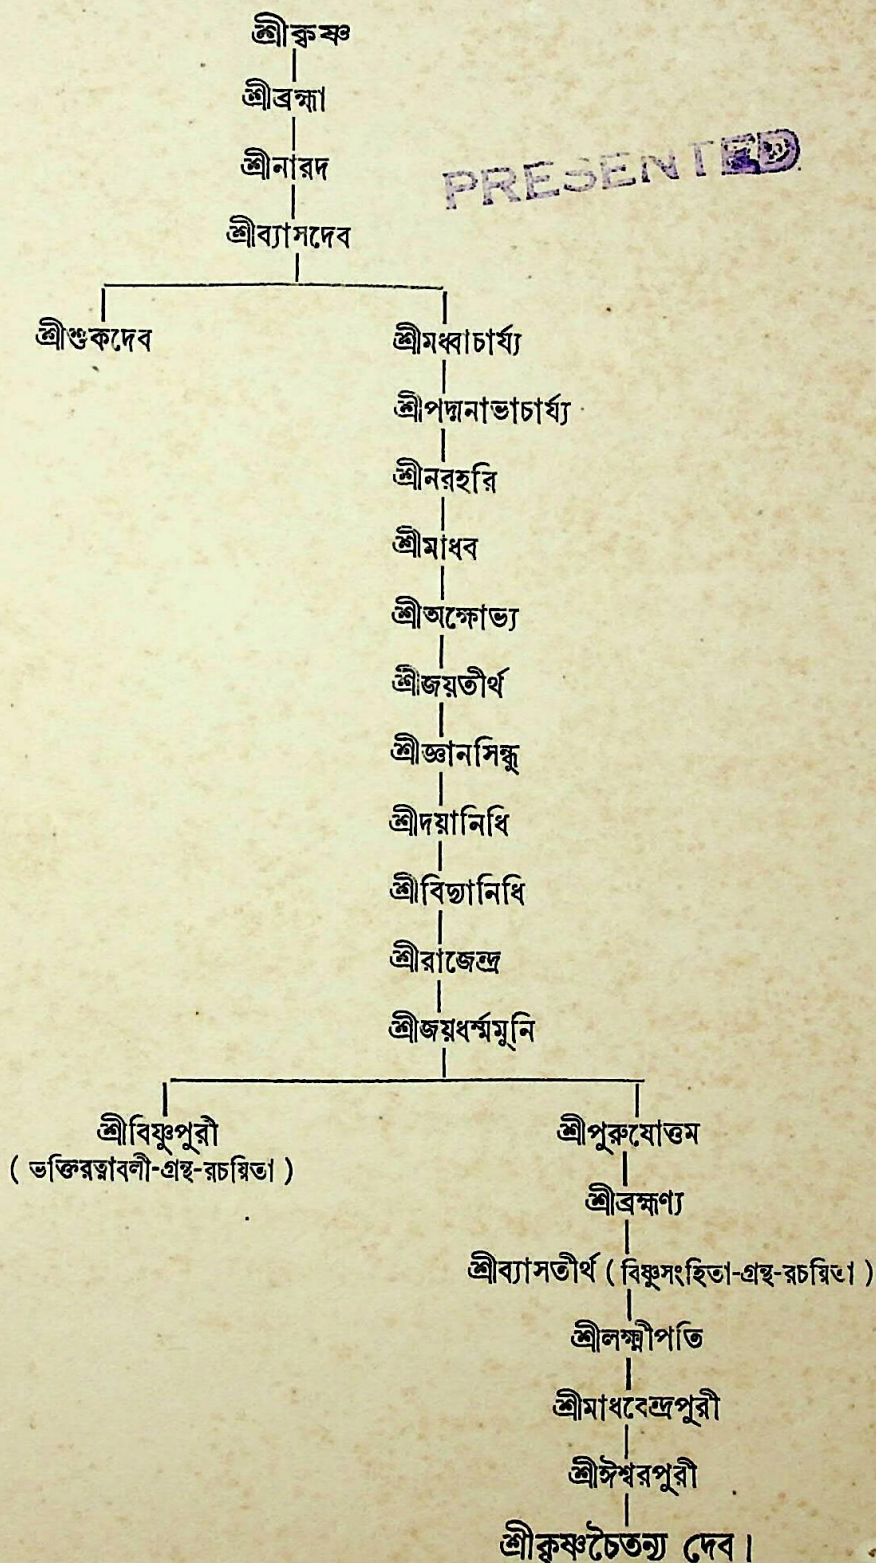 শ্রীকৃষ্ণ
শ্রীব্রহ্মা
শ্রীনারদ
PRESENTED
শ্রীব্যাসদেব
শ্রীশুকদেব শ্রীমধ্বাচার্য্য
শ্রীপদ্মনাভাচার্য্য
শ্রীনরহরি
শ্রীমাধব
শ্রীঅক্ষোভ্য
শ্রীজয়তীর্থ
শ্রীজ্ঞানসিন্ধু
শ্রীদয়ানিধি
শ্রীবিদ্যানিধি
শ্রীরাজেন্দ্র
শ্রীজয়ধর্ম্মমুনি
শ্রীবিষ্ণুপুরী শ্রীপুরুষোত্তম
( ভক্তিরত্নাবলী-গ্রন্থ-রচয়িতা )
শ্রীব্রহ্মণ্য
শ্রীব্যাসতীর্থ ( বিষ্ণুসংহিতা-গ্রন্থ-রচয়িতা )
শ্রীলক্ষ্মীপতি
শ্রীমাধবেন্দ্রপুরী
শ্রীঈশ্বরপুরী
শ্রীকৃষ্ণচৈতন্য দেব।